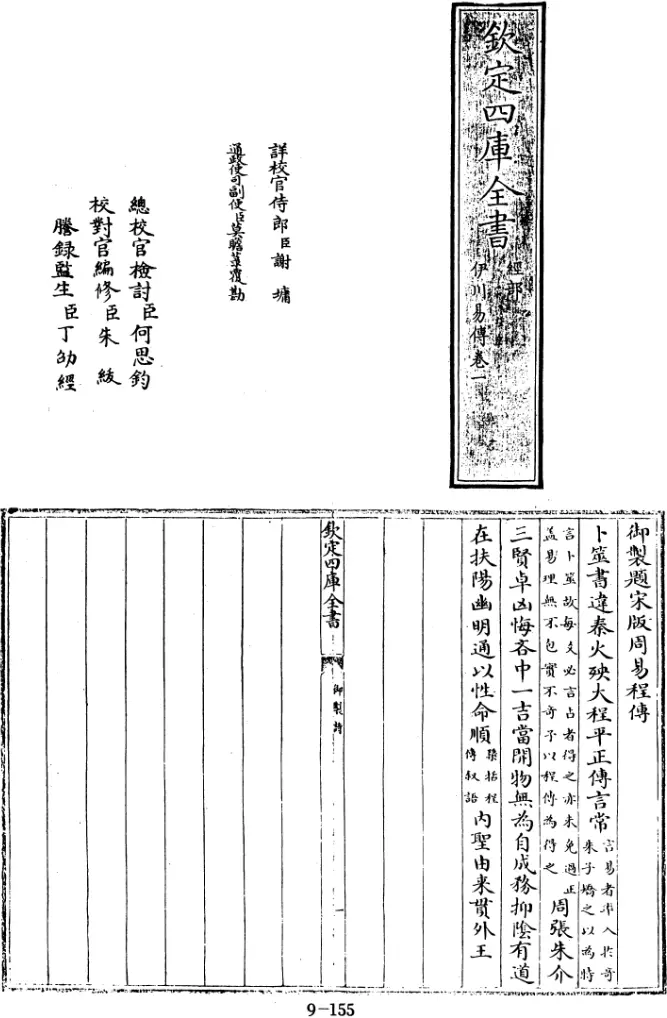 欽定四庫全書
經部
伊川易傳卷一
詳校官侍郎臣謝墉
通政使司副使臣莫瞻菉覆勘
總校官檢討臣何思鈞
校對官編修臣朱紱
謄錄監生臣丁劭經
御製題宋版周易程傳
卜筮書違秦火殃大程平正傳言常言易者率入於奇
朱子矯之以為特
言卜筮故每爻必言占者得之亦未免過正
蓋易理無不包實不奇予以程傳為得之周張朱介
三賢卓凶悔吝中一吉當開物無為自成務抑陰有道
在扶陽幽明通以性命順櫽括程
傳叙語内聖由来貫外王
欽定四庫全書
御製詩
9-155